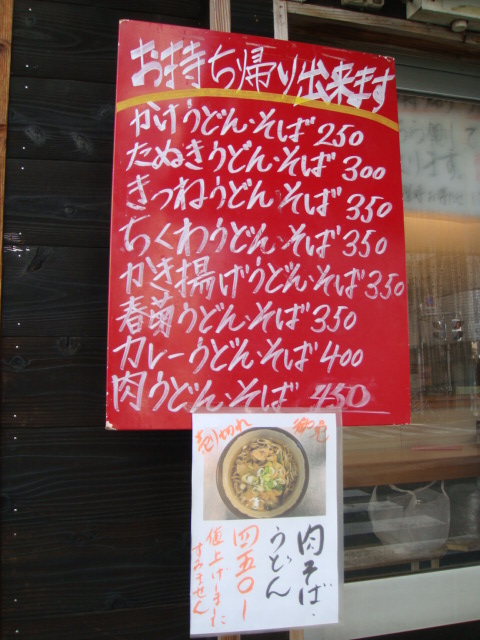 お持ち帰り出来ます
かけうどん・そば250
たぬきうどん・そば300
きつねうどん・そば350
ちくわうどん・そば350
かき揚げうどん・そば350
春菊うどん・そば350
カレーうどん・そば400
肉うどん・そば450
売り切れ
御免
肉そば・
うどん
四五〇-
値上げしました
すみません